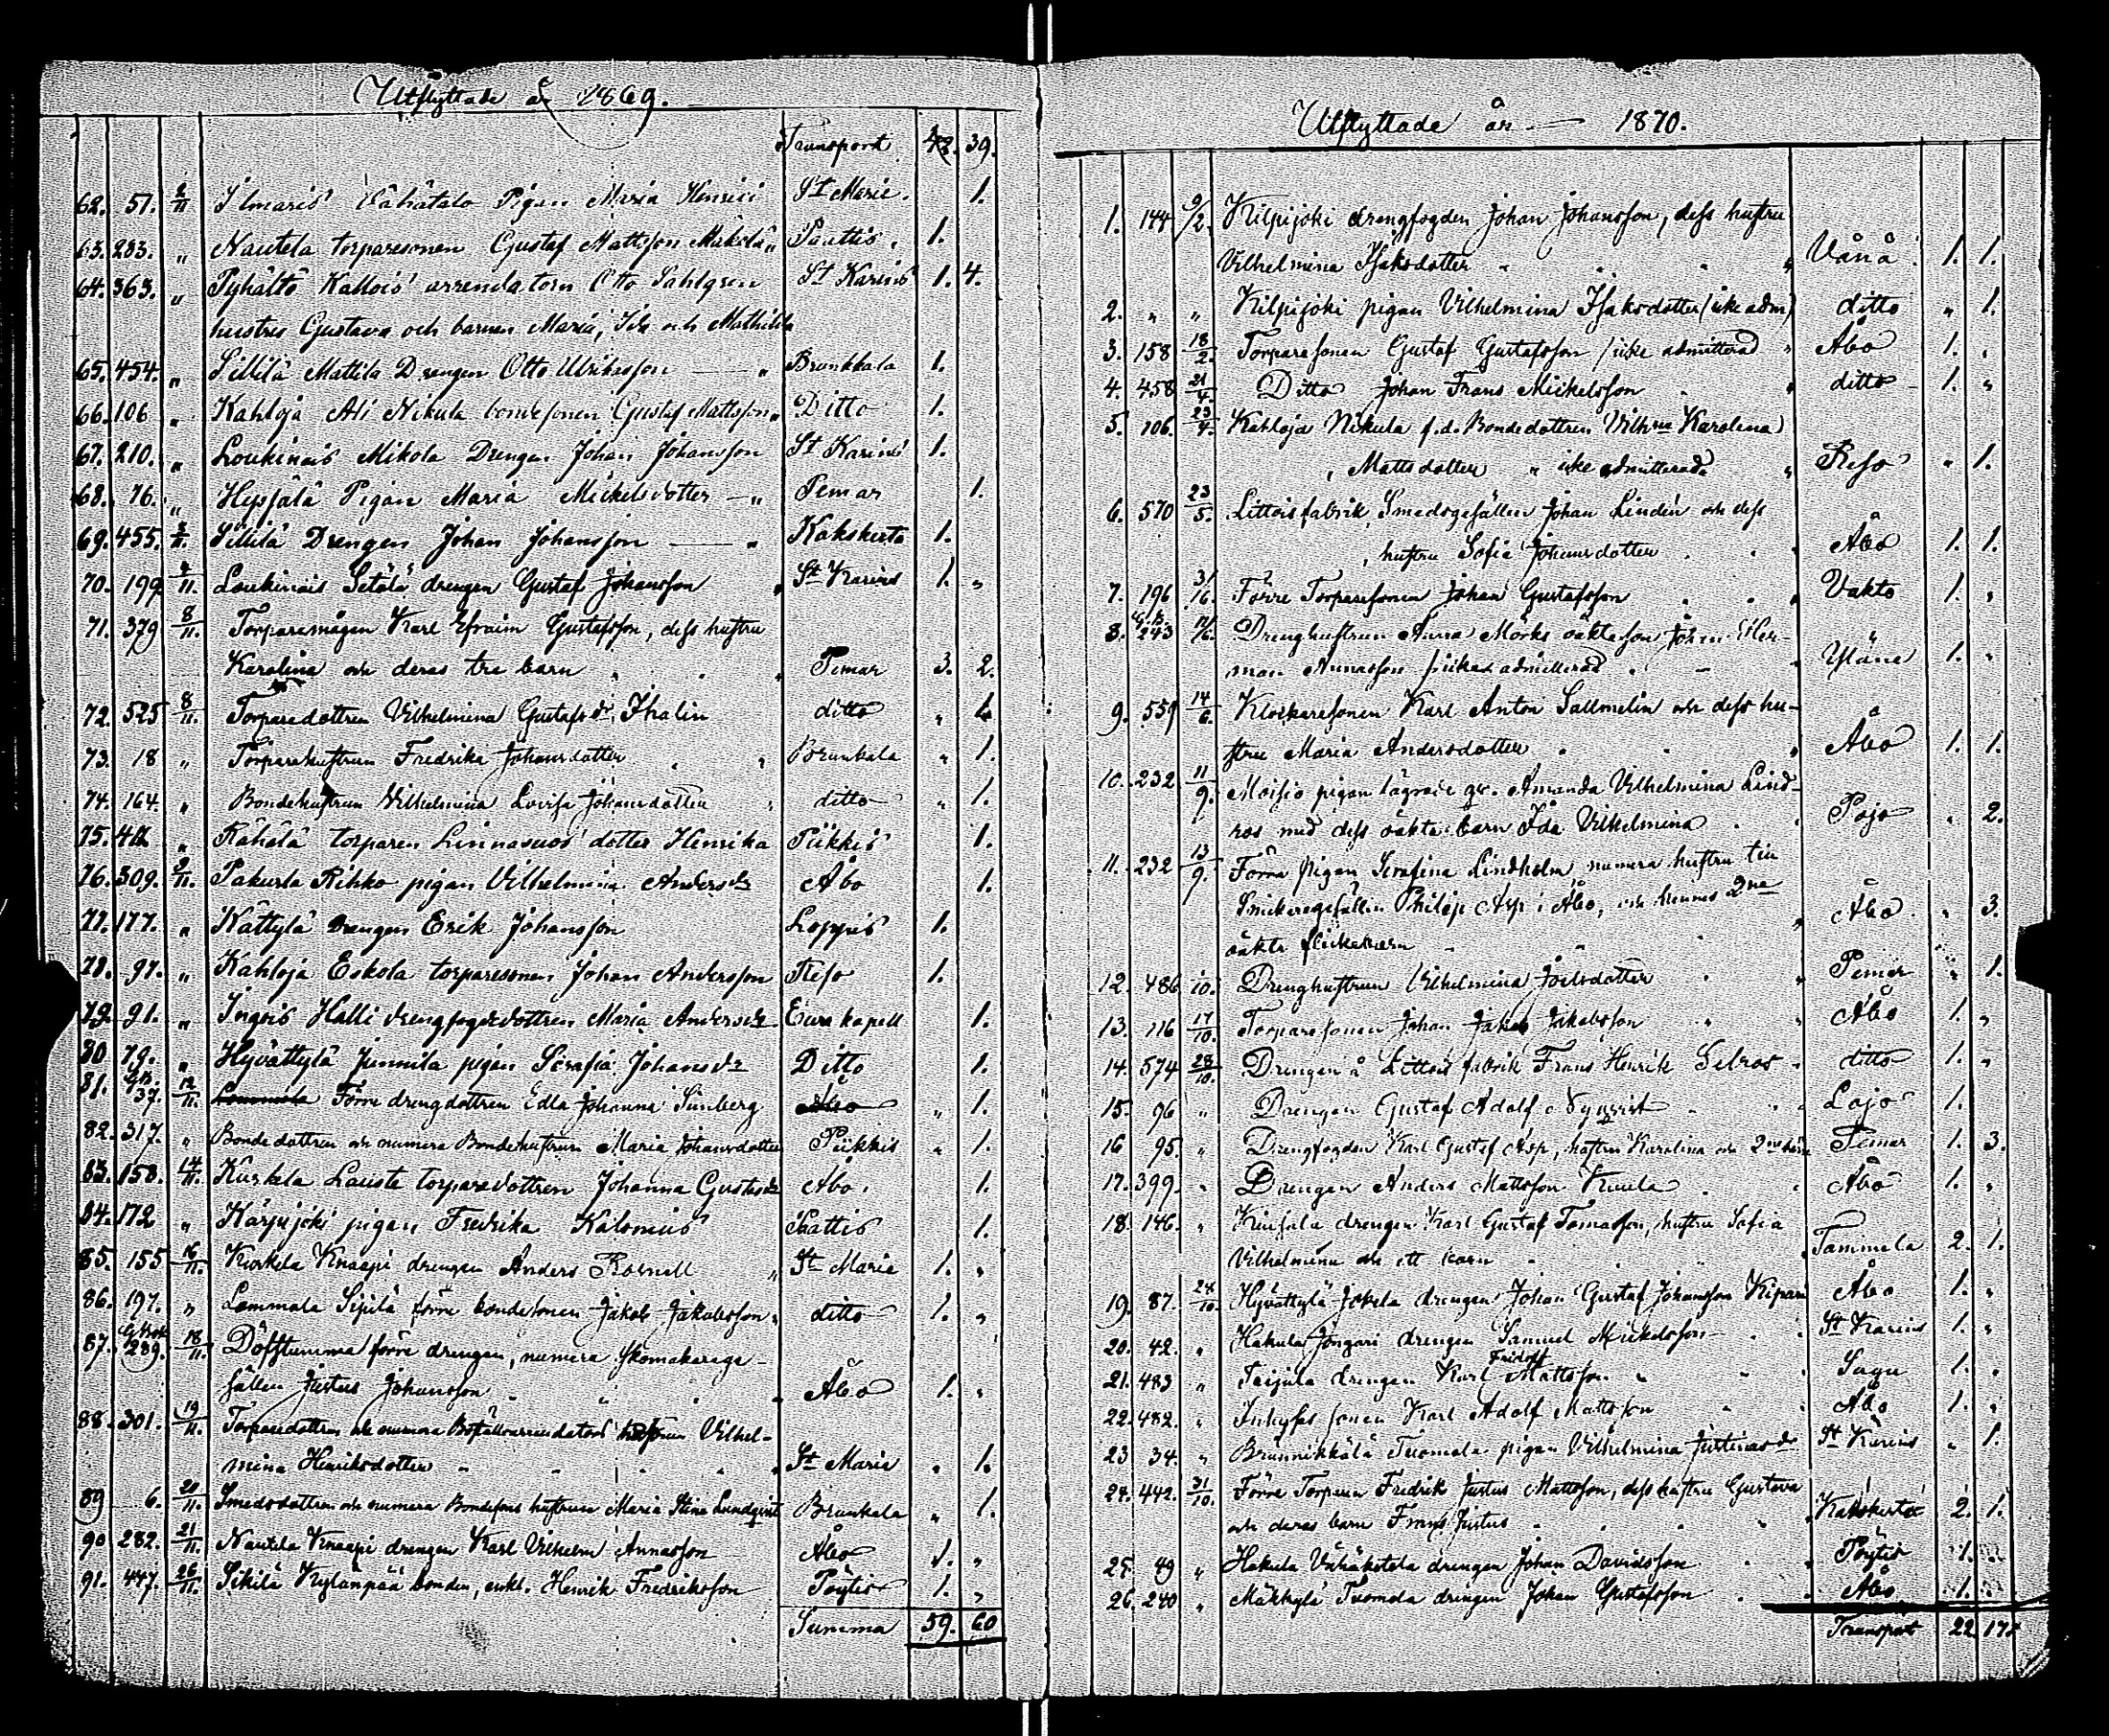 Utflyttade år 1869.
Transport 42. 39.
62. 51. 2/11 Ilmaris Pigan Maria Henrici St Marie. 1.
63. 283. „ Nautela torparesonen Gustaf Mattsson Mäkelä „ Pauttis. 1.
64. 363. „ Pyhältö Kallois arrendatorn Otto Sahlgren St Karins 1. 4.
hustru Gustava och barnen Maria, Ida och Mathilda
65. 454. „ Sillilä Mattila Drengen Otto Ulrikasson — „ Brunkkala 1.
66. 106 „ Kahloja Ali Nikula bondesonen Gustaf Mattsson „ Ditto 1.
67. 210. „ Loukinais Mikola Drengen Johan Johansson St Karins 1.
68. 76. „ Hepjälä Pigan Maria Mickelsdotter — „ Pemar 1.
69. 455. 2/11. Sillilä Drengen Johan Johansson — „ Kakskerta 1.
70. 199. 4/11. Loukinais Setälä drengen Gustaf Johansson „ St Karins 1. „
71. 379 8/11. Torparemågen Karl Efraim Gustafsson, dess hustru
Karolina och deras tre barn „ „ „ Pemar 3. 2.
72. 525 8/11. Torparedottren Vilhelmina Gustafsdr Thalin ditto „ 1.
73. 18 „ Torparehustrun Fredrika Johansdotter „ „ Brunkala „ 1.
74. 164. „ Bondehustrun Vilhelmina Lovisa Johansdotter „ ditto „ 1.
75. 412 „ Rähälä torparen Linnasuos dotter Henrika Piikkis 1.
76. 309. 9/11. Pakurla Rihko pigan Vilhelmina Andersdr Åbo 1.
77. 177. „ Kättylä Drengen Erik Johansson Loppis 1.
78. 97. „ Kahloja Eskola torparesonen Johan Andersson Reso 1.
79. 91. „ Ingois Halli drengfogdedottren Maria Andersdr Eura kapell 1.
80 79. „ Hyvättylä Junnila pigan Serafia Johansdr Ditto 1.
81. GB. 37. 12/11. Lammala Förre drengdottren Edla Johanna Sünberg Åbo „ 1.
82. 317. „ Bondedottren och numera Bondehustrun Maria Johansdotter Piikkis „ 1.
83. 158. 14/11. Kurkela Lausta torparedottren Johanna Gustafsdr Åbo. 1.
84. 172 „ Karjujoki pigan Fredrika Kalenius Pattis 1.
85. 155 16/11. Kurkela Knaapi drengen Anders Rosnell „ St Marie 1. „
86. 197. „ Lammala Sipilä förre bondesonen Jakob Jakobsson „ ditto 1. „
87. GBok 289. 18/11. Döfstumma förre drengen, numera Skomakarege-
sällen Justus Johansson „ „ „ Åbo 1. „
88. 301. 19/11. Torparedottren och numera Boställsarrendators hustrun Vilhel-
mina Henriksdotter „ „ „ St Marie „ 1.
89 6. 20/11. Smedsdottren och numera Bondesons hustrun Maria Stina Lundqvist Brunkala „ 1.
90 282. 21/11. Nautela Knaapi drengen Karl Vilhelm Annasson Åbo 1. „
91. 447. 26/11. Sikilä Kylänpää bonden, enkl. Henrik Fredriksson Pöytis 1. „
Summa 59. 60
Utflyttade år — 1870.
1. 144 9/2. Kilpijoki drengfogden Johan Johansson, dess hustru
Vilhelmina Isaksdotter „ „ „ Vånå 1. 1.
2. „ „ Kilpijoki pigan Vilhelmina Isaksdotter (icke adm) ditto „ 1.
3. 158 18/2. Torparesonen Gustaf Gustafsson (icke admitterad „ Åbo 1. „
4. 458 21/4. Ditto Johan Frans Mickelsson „ „ ditto 1. „
5. 106. 23/4. Kahloja Nikula f.d. Bondedottren Vilhna Karolina)
„ Mattsdotter „ icke admitterade „ Reso „ 1.
6. 570 23/5. Littois fabrik, Smedsgesällen Johan Lindén och dess
„ hustru Sofia Johansdotter „ „ „ Åbo 1. 1.
7. 196 3/6. Förre Torparesonen Johan Gustafsson „ „ „ Vakto 1. „
8. G.B. 243 14/6. Drenghustrun Anna Mörks oäkta son Johan Her-
man Annasson (icke admitterad „ — „ Yläne 1. „
9. 559 14/6. Klockaresonen Karl Anton Sallmelin och dess hu-
stru Maria Andersdotter „ „ „ Åbo 1. 1.
10. 232 11/9. Moisio pigan lägrade qv. Amanda Vilhelmina Lind-
ros med dess oäkta barn Ida Vilhelmina „ „ Pojo „ 2.
11. 232 13/9. Förra pigan Serafina Lindholm numera hustru till
Snickaregesällen Philip Asp i Åbo, och hennes 2ne „ Åbo „ 3.
oäkta flickebarn „ „ „
12. 486 1/10. Drenghustrun Vilhelmina Joelsdotter „ „ Pemar „ 1.
13. 116 17/10. Torparesonen Johan Jakob Jakobsson „ „ Åbo 1. „
14. 574 28/10. Drengen å Littois fabrik Frans Henrik Selroos „ ditto 1. „
15. 96 „ Drengen Gustaf Adolf Nyqvist „ „ Lojo 1.
16 95. „ Drengfogden Karl Gustaf Asp, hustru Karolina och 2ne barn Pemar 1. 3.
17. 399. „ Drengen Anders Mattsson Knuula „ „ Åbo 1. „
18. 146. „ Kinsala drengen Karl Gustaf Tomasson, hustru Sofia
Vilhelmina och ett barn „ „ „ Tammela 2. 1.
19. 87. 28/10. Hyvättylä Jokela drengen Johan Gustaf Johansson Kipari Åbo 1. „
20. 42. „ Hakula Jongari drengen Samuel Mickelsson „ St Karins 1. „
21. 483 „ Teijula drengen Karl Fridolf Mattsson „ „ Sagu 1. „
22. 482. „ Inhyses sonen Karl Adolf Mattsson „ „ Åbo 1. „
23 34. „ Brunnikkälä Tuomola pigan Vilhelmina Justinasdr St Karins „ 1.
24. 442. 31/10. Förre Torparen Fredrik Justus Mattsson, dess hustru Gustava
och deras barn Frans Justus „ „ „ „ Kakskerta 2. 1.
25. 89 „ Hakula Vähäkotola drengen Johan Davidsson „ „ Pöytis 1.
26. 240 „ Mäkkylä Tuomola drengen Johan Gustafsson „ „ Åbo 1.
Transport 22. 17.